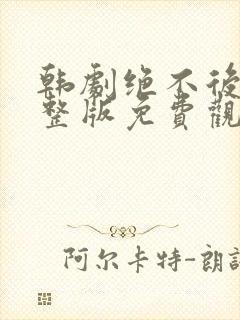 韩劇绝不後
整版免費觀
阿尔卡特-朗